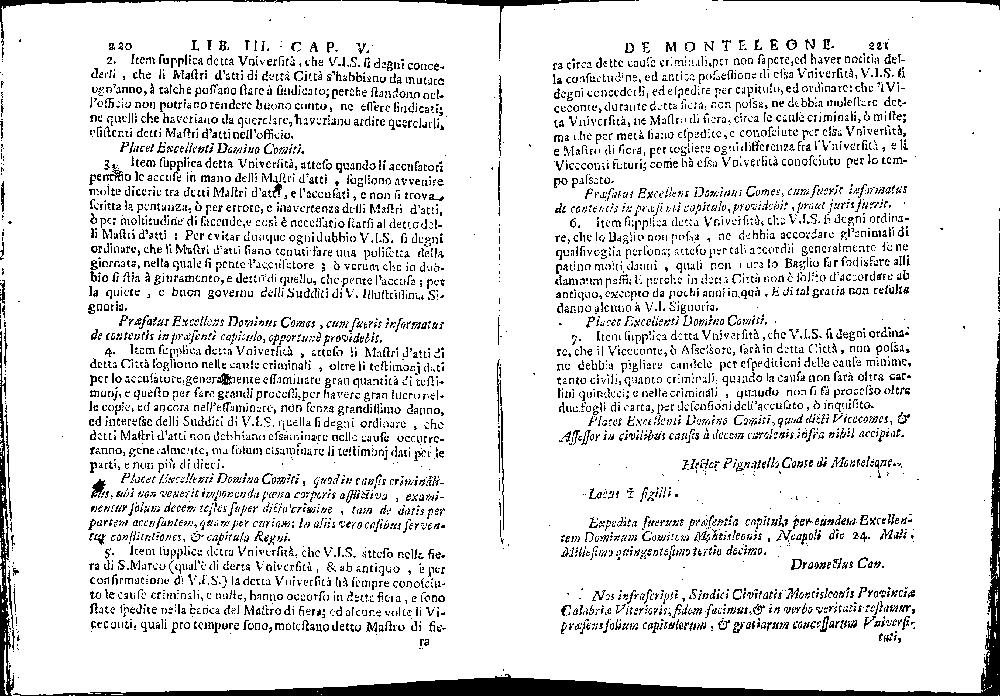 220 LIB. III. CAP. V.
2. Item ſupplica detta Vniverſità, che V.I.S. ſi degni conce-
derli, che li Maſtri d'atti di detta Città s'habbiano da mutare
ogn'anno, à talche poſſano ſtare à ſindicato; perche ſtandono nel-
l'officio non potriano rendere buono cunto, ne eſſere ſindicati;
ne quelli che haveriano da querelare, haveriano ardire querelarli,
eſiſtenti detti Maſtri d'atti nell'officio.
Placet Excellenti Domino Comiti.
3. Item ſupplica detta Vniverſità, atteſo quando li accuſatori
le accuſe in mano delli Maſtri d'atti, ſogliono avvenire
molte dicerie tra detti Maſtri d'atti, e l'accuſati, e non ſi trova
ſcritta la pentanza, ò per errore, e inavertenza delli Maſtri d'atti,
ò per moltitudine di facende, e così è neceſſario ſtarſi al detto del-
li Maſtri d'atti; Per evitar dunque ogni dubbio V.I.S. ſi degni
ordinare, che li Maſtri d'atti ſiano tenuti fare una poliſetta della
giornata, nella quale ſi pente l'accuſatore; ò verum che in dub-
bio ſi ſtia à giuramento, e detto di quello, che pente l'accuſa; per
la quiete, e buon governo delli Sudditi di V. Illuſtriſſima Si-
gnoria.
Præfatus Excellens Dominus Comes, cum fuerit informatus
de contentis in præſenti capitulo, opportunè providebit.
4. Item ſupplica detta Vniverſità, atteſo li Maſtri d'atti di
detta Città ſogliono nelle cauſe criminali, oltre li teſtimonj dati
per lo accuſatore, generalmente eſſaminare gran quantità di teſti-
monj, e queſto per fare grandi proceſſi, per havere gran lucro nel-
le copie, ed ancora nell'eſſaminare, non ſenza grandiſſimo danno,
ed intereſſe delli Sudditi di V.I.S. quella ſi degni ordinare, che
detti Maſtri d'atti non debbiano eſſaminare nelle cauſe occurre-
ranno, generalmente, ma ſolum eſsaminare li teſtimonj dati per le
parti, e non più di dieci.
Placet Excellenti Domino Comiti, quod in cauſis criminali-
bus, ubi non venerit imponenda pœna corporis afflictiva, exami-
nentur ſolum decem teſtes ſuper dicto crimine, tam de datis per
partem accuſantem, quam per curiam: In aliis vero caſibus ſerven-
tur conſtitutiones, & capitula Regni.
5. Item ſupplica detta Vniverſità, che V.I.S. atteſo nella fie-
ra di S. Marco (qual'è di detta Vniverſità, & ab antiquo, e per
confirmatione di V.I.S.) la detta Vniverſità hà ſempre conoſciu-
to le cauſe criminali, e miſte, hanno occorſo in dette fiera, e ſono
ſtate ſpedite nella banca del Maſtro di fiera; ed alcune volte li Vi-
ceconti, quali pro tempore ſono, moleſtano detto Maſtro di fie-
ra
DE MONTELEONE. 221
ra circa dette cauſe criminali, per non ſapere, ed haver notitia del-
la conſuetudine, ed antica poſſeſſione di eſſa Vniverſità, V.I.S. ſi
degni concederli, ed eſpedire per capitulo, ed ordinare: che 'l Vi-
ceconte, durante detta fiera, non poſſa, ne debbia moleſtare det-
ta Vniverſità, ne Maſtro di fiera, circa le cauſe criminali, ò miſte;
ma che per metà ſiano eſpedite, e conoſciute per eſſa Vniverſità,
e Maſtro di fiera, per togliere ogni differenza fra l'Vniverſità, e li
Viceconti futuri; come hà eſſa Vniverſità conoſciuto per lo tem-
po paſſato.
Præfatus Excellens Dominus Comes, cum fuerit informatus
de contentis in præſenti capitulo, providebit, prout juris fuerit.
6. Item ſupplica detta Vniverſità, che V.I.S. ſi degni ordina-
re, che lo Baglio non poſſa, ne debbia accordare gl'animali di
qualſivoglia perſona; atteſo per tali accordii generalmente ſe ne
patino molti danni, quali non cura lo Baglio far ſodisfare alli
damnum paſſi; E perche in detta Città non è ſolito d'accordare ab
antiquo, excepto da pochi anni in quà. E di tal gratia non reſulta
danno alcuno à V.I. Signoria.
Placet Excellenti Domino Comiti.
7. Item ſupplica detta Vniverſità, che V.I.S. ſi degni ordina-
re, che il Viceconte, ò Aſſeſſore, ſarà in detta Città, non poſſa,
ne debbia pigliare candele per eſpeditioni delle cauſe minime,
tanto civili, quanto criminali, quando la cauſa non ſarà oltra car-
lini quindeci; e nelle criminali, quando non ſi fà proceſſo oltre
due fogli di carta, per defenſioni dell'accuſato, ò inquiſito.
Placet Excellenti Domino Comiti, quod dicti Vicecomes, &
Aſſeſſor in civilibus cauſis à decem carolenis infra nihil accipiat.
Hector Pignatello Conte di Monteleone.
Locus ✠ ſigilli.
Expedita fuerunt præſentia capitula per eundem Excellen-
tem Dominum Comitem Montisleonis, Neapoli die 24. Maii.
Milleſimo quingenteſimo tertio decimo.
Can.
Nos infraſcripti, Sindici Civitatis Montisleonis Provinciæ
Calabriæ Vlterioris, fidem facimus, & in verbo veritatis teſtamur,
præſens ſolium capitulorum, & gratiarum conceſſarum Vniverſi-
tati,